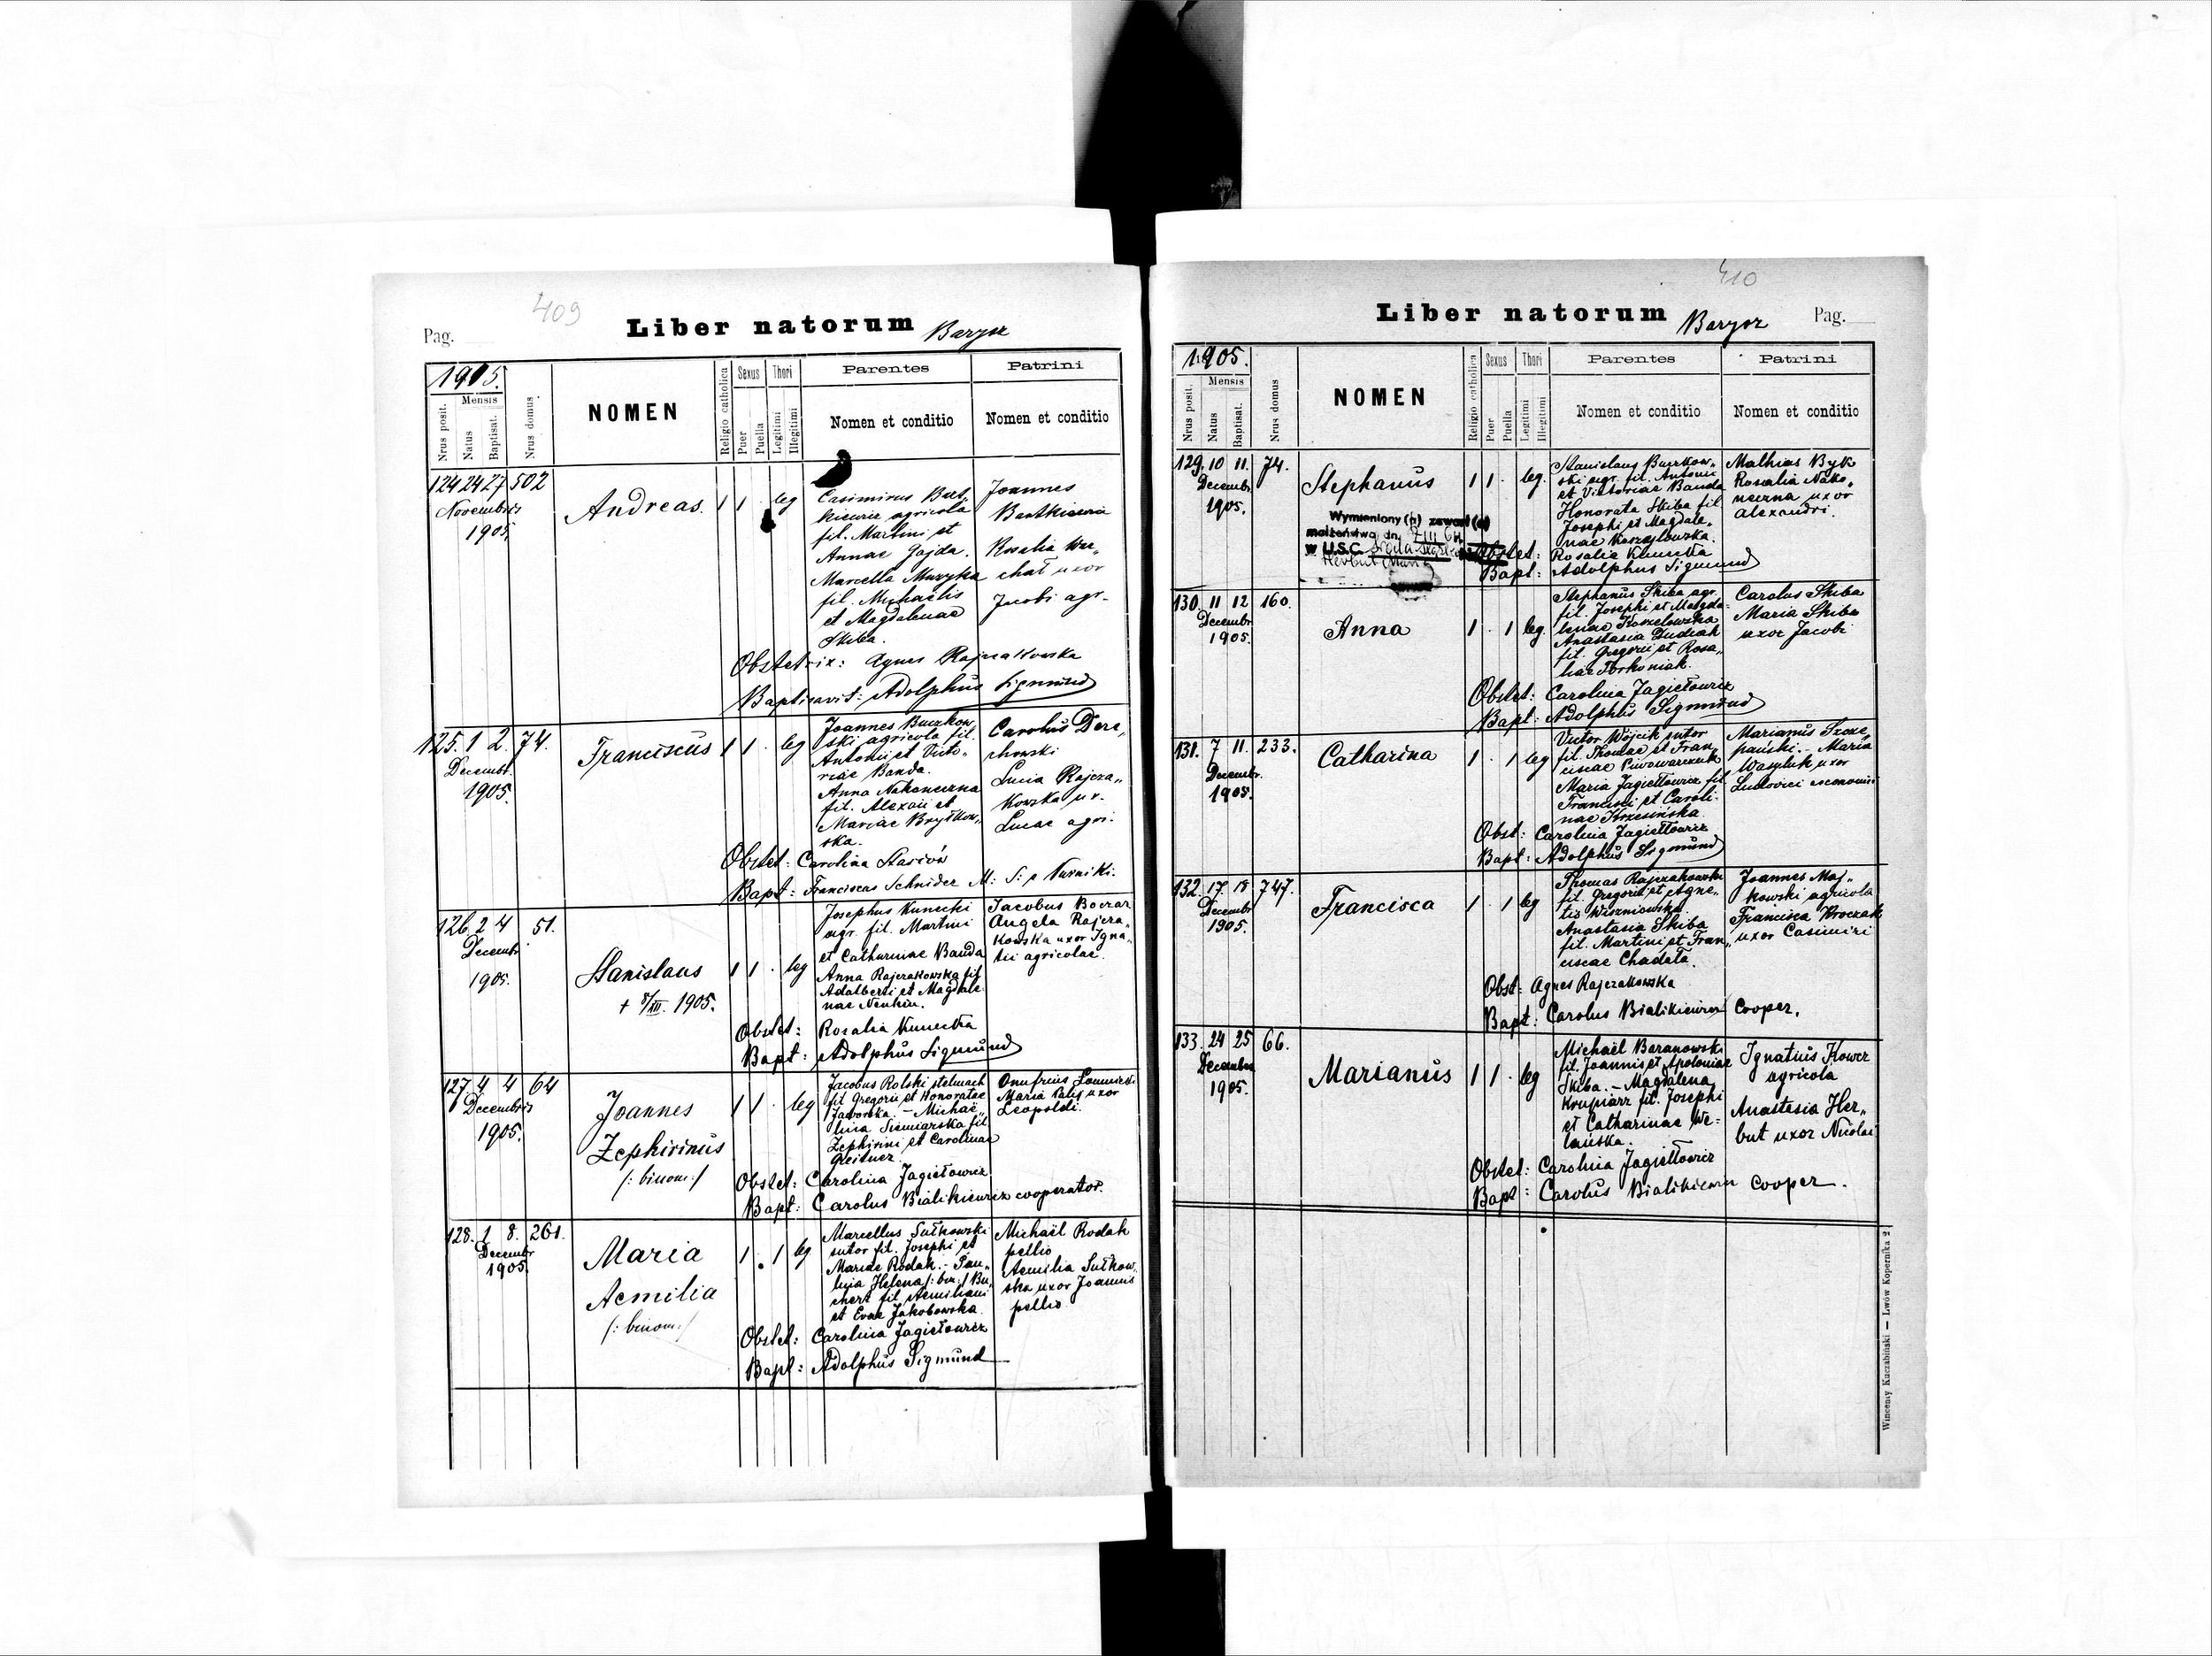 409
Pag.
Liber natorum Barysz
1905.
Nrus posit.
Mensis
Natus
Baptisat.
Nrus domus
NOMEN
Religio catholica
Sexus
Puer
Puella
Thori
Legitimi
Illegitimi
Parentes
Nomen et conditio
Patrini
Nomen et conditio
124 24 27 502
Novembris
1905.
Andreas.
1 1 leg
Casimirus Bart-
kiewicz agricola
fil. Martini et
Annae Gajda.
Marcella Muzyka
fil. Michaëlis
et Magdalenae
Skiba.
Joannes
Bartkiewicz
Rosalia War„
chał uxor
Jacobi agr.
Obstetrix: Agnes Rajzakowska
Baptisavit: Adolphus Sigmund
125. 1 2. 74.
Decembr.
1905.
Franciscus
1 1 leg
Joannes Buczkow„
ski agricola fil.
Antonii et Victo„
riae Banda.
Anna Nakoneczna
fil. Alexandri et
Mariae Bryłkow„
ska.
Carolus Dere„
chowski
Lucia Rajcza„
kowska ux.
Lucae agri.
Obstet: Carolina Stasiów
Bapt: Franciscus Schnider M: S:
126. 2 4 51.
Decembr
1905.
Stanislaus
+ 8/XII. 1905.
1 1 leg
Josephus Kunecki
agr. fil. Martini
et Catharinae Banda
Anna Rajczakowska fil
Adalberti et Magdale
nae
Jacobus Boczar
Angela Rajcza„
kowska uxor Igna„
tii agricolae.
Obstet: Rosalia Kunecka
Bapt: Adolphus Sigmund
127. 4 4 64
Decembris
1905.
Joannes
Zephirinus
/: binom:/
1 1 leg
Jacobus Rolski stelmach
fil Gregorii et Honoratae
Jaworska. – Michaë„
lina Siemiarska fil.
Zephirini et Carolinae
Geitner.
Onufrius
Maria uxor
Leopoldi.
Obstet: Carolina Jagiełowicz
Bapt: Carolus Bialikiewicz cooperator.
128. 1 8. 261.
Decembr
1905.
Maria
Aemilia
/: binom:/
1 . 1 leg
Marcellus Sułkowski
sutor fil. Josephi et
Mariae Rodak. – Pau„
lina Helena /: bin:/ Bu„
chert fil. Aemiliani
et Evae Jakobowska.
Michaël Rodak
pellio
Aemilia Sułkow„
ska uxor Joannis
pellio
Obstet: Carolina Jagiełowicz
Bapt: Adolphus Sigmund
410
Liber natorum Barysz
Pag.
1905.
Nrus posit.
Mensis
Natus
Baptisat.
Nrus domus
NOMEN
Religio catholica
Sexus
Puer
Puella
Thori
Legitimi
Illegitimi
Parentes
Nomen et conditio
Patrini
Nomen et conditio
129. 10 11. 74.
Decembr.
1905.
Stephanus
1 1 leg.
Stanislaus Buczkow„
ski agr. fil. Antonii
et Victoriae Banda
Honorata Skiba fil
Josephi et Magdale„
nae
Mathias Byk
Rosalia Nako„
neczna uxor
Alexandri.
Wymieniony (a) zawarł (a)
małżeństwo dn.
w U.S.C.
Obstet: Rosalia Kunecka
Bapt: Adolphus Sigmund
130. 11 12 160.
Decembr
1905.
Anna
1 . 1 leg.
Stephanus Skiba agr.
fil. Josephi et Magda-
lenae Koszelowska
Anastasia Dudiak
fil. Gregorii et Rosa„
liae Torkoniak.
Carolus Skiba
Maria Skiba
uxor Jacobi
Obstet: Carolina Jagiełowicz
Bapt: Adolphus Sigmund
131. 7 11. 233.
Decembr.
1905.
Catharina
1 . 1 leg
Victor Wójcik sutor
fil. Thomae et Fran„
ciscae Piwowarczuk
Maria Jagiełłowicz fil
Francisci et Caroli-
nae Krzesińska.
Marianus Szcze„
pański. – Maria
Wasyluk uxor
Ludovici
Obst: Carolina Jagiełłowicz
Bapt: Adolphus Sigmund
132. 17. 18 747.
Decembr
1905.
Francisca
1 . 1 leg
Thomas Rajczakowski
fil. Gregorii et Agne„
tis Wiszniowska.
Anastasia Skiba
fil. Martini et Fran„
ciscae Chadała.
Joannes Maj„
kowski agricola
Francisca Kroczak
uxor Casimiri
Obst: Agnes Rajczakowska
Bapt: Carolus Bialikiewicz cooper.
133. 24 25 66.
Decembr
1905.
Marianus
1 1 leg
Michaël Baranowski
fil. Joannis et Apoloniae
Skiba. – Magdalena
Krupiarz fil. Josephi
et Catharinae We-
lańska.
Ignatius Kowcz
agricola
Anastasia Her„
but uxor Nicolai
Obstet: Carolina Jagiełłowicz
Bapt: Carolus Bialikiewicz cooper.
Wincenty Kuczabiński — Lwów Kopernika 2